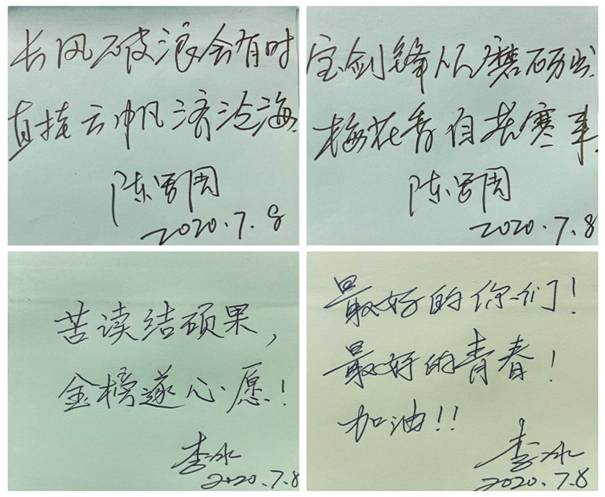 长风破浪会有时
直挂云帆济沧海.
2020.7.8
宝剑锋从磨砺出
梅花香自苦寒来.
2020.7.8
苦读结硕果，
金榜遂心愿！
李冰
2020.7.8
最好的你们！
最好的青春！
加油！！
李冰
2020.7.8